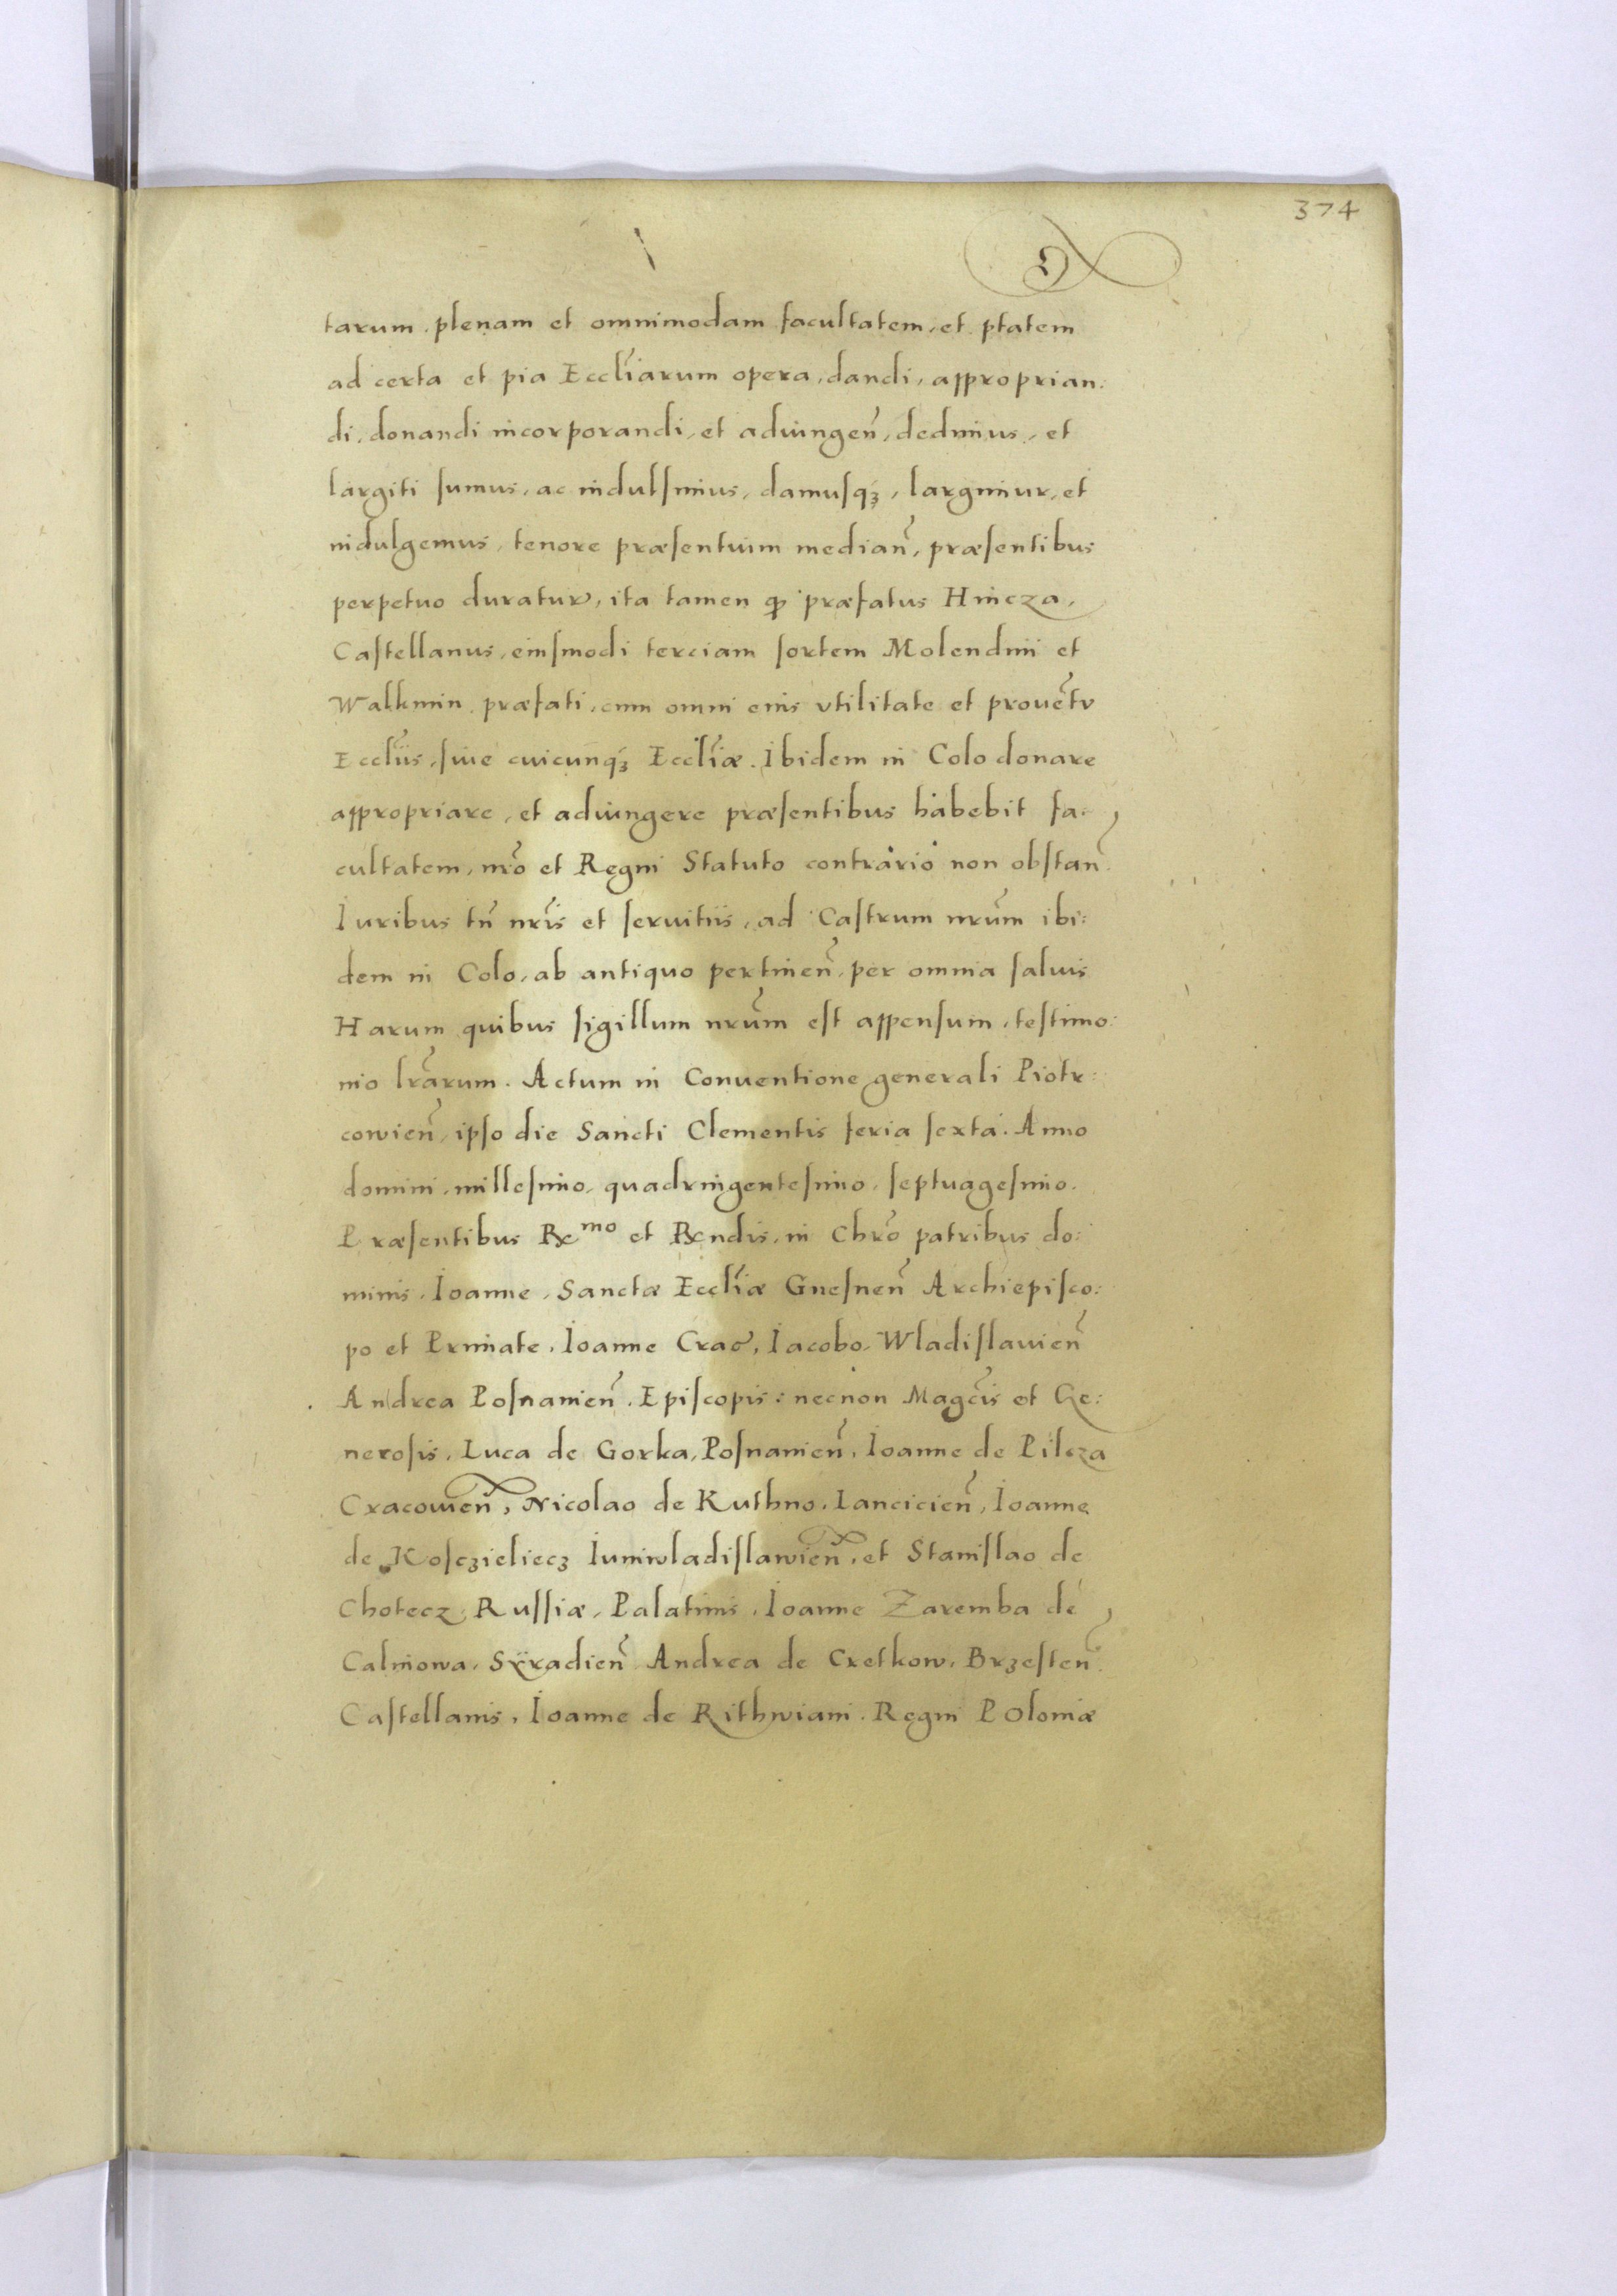 374
tarum. plenam et omnimodam facultatem, et ptatem
ad certa et pia Eccl̃iarum opera, dandi, approprian:
di, donandi incorporandi, et adiungeñ, dedimus, et
largiti sumus, ac indulsimus, damusq́ꝫ, largimur, et
indulgemus, tenore præsentium mediañ, præsentibus
perpetuo duratur, ita tamen ꝙ præfatus Hincza,
Castellanus, eiusmodi terciam sortem Molendini et
Walkmin præfati, cum omni eius vtilitate et prouẽtv
Eccl̃iis, siue cuicunq́ꝫ Eccl̃iæ. Ibidem in Colo donare
appropriare, et adiungere præsentibus habebit fa:
cultatem, nr̃o et Regni Statuto contrario non obstañ.
Iuribus tñ nr̃is et seruitiis, ad Castrum nr̃um ibi:
dem in Colo, ab antiquo pertineñ, per omnia saluis
Harum quibus sigillum nr̃um est appensum, testimo:
nio lr̃arum. Actum in Conuentione generali Piotr:
cowieñ, ipso die Sancti Clementis feria sexta. Anno
domini, millesimo, quadringentesimo, septuagesimo.
Præsentibus Re^mo et Rendis, in Chr̃o patribus do:
minis, Ioanne, Sanctæ Eccl̃iæ Gnesneñ Archiepisco:
po et Primate, Ioanne Crac̃, Iacobo, Wladislauieñ
Andrea Posnanieñ. Episcopis: necnon Magc̃is et Ge:
nerosis, Luca de Gorka, Posnanieñ, Ioanne de Pilcza
Cracouieñ, Nicolao de Kuthno, Lancicieñ, Ioanne
de Kosczieliecz Iuniwladislawieñ, et Stanislao de
Chotecz, Russiæ, Palatinis, Ioanne Zaremba de
Calinowa, Syradieñ Andrea de Cretkow, Brzesteñ.
Castellanis, Ioanne de Rithwiani. Regni Poloniæ